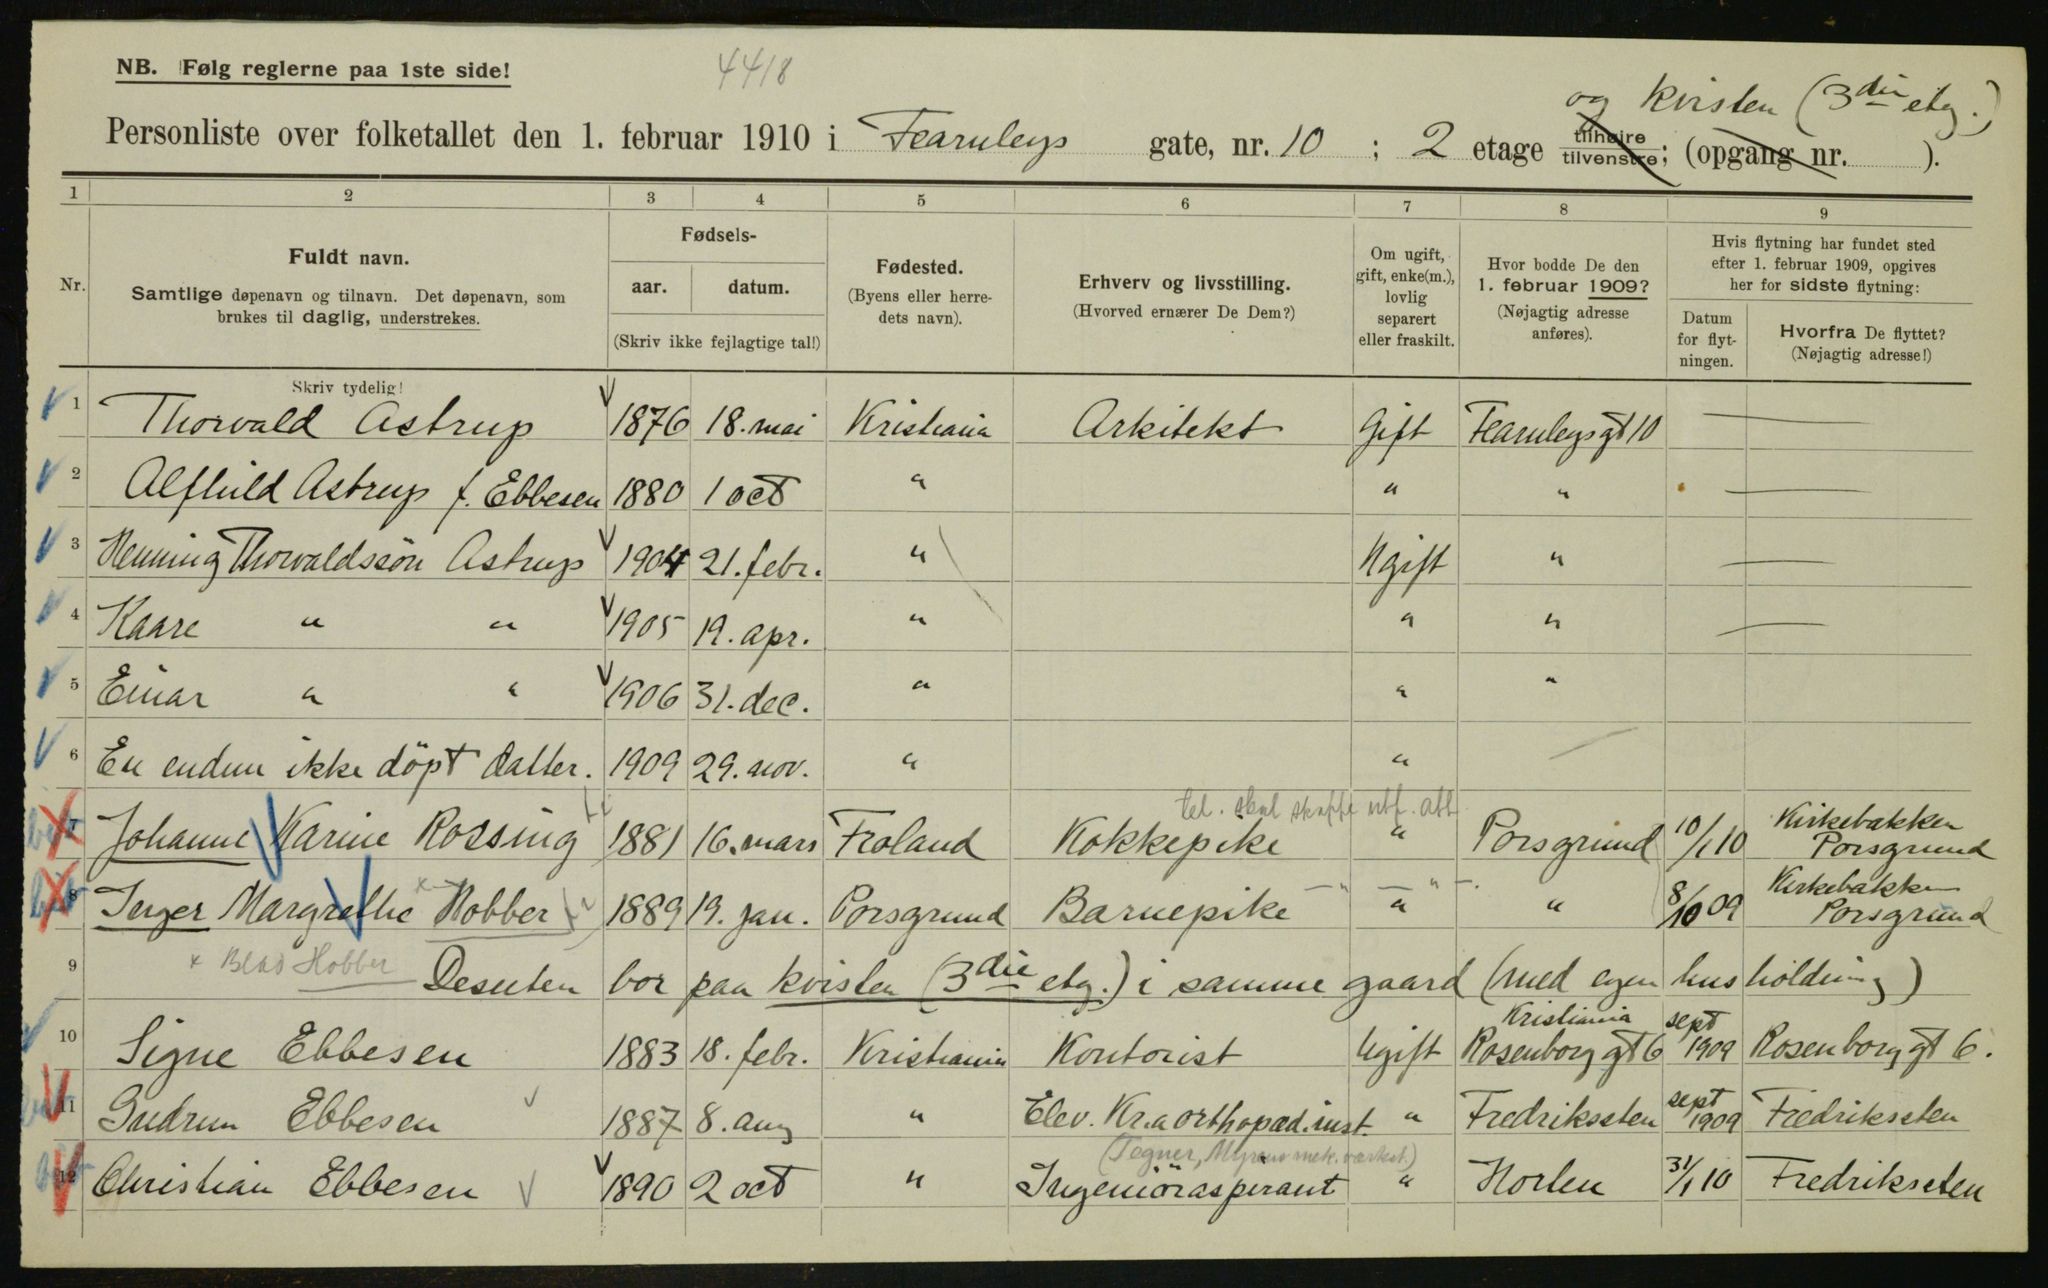 NB. Følg reglerne paa 1ste side!
4418
og kvisten (3die etg.)
Personliste over folketallet den 1. februar 1910 i Fearnleys gate, nr. 10 ; 2 etage tilhøire tilvenstre; (opgang nr. ).
1 2 3 4 5 6 7 8 9
Nr.
Fuldt navn.
Samtlige døpenavn og tilnavn. Det døpenavn, som
brukes til daglig, understrekes.
Fødsels-
aar. datum.
(Skriv ikke fejlagtige tal!)
Fødested.
(Byens eller herre-
dets navn).
Erhverv og livsstilling.
(Hvorved ernærer De Dem?)
Om ugift,
gift, enke(m.),
lovlig
separert
eller fraskilt.
Hvor bodde De den
1. februar 1909?
(Nøjagtig adresse
anføres).
Hvis flytning har fundet sted
efter 1. februar 1909, opgives
her for sidste flytning:
Datum
for flyt-
ningen.
Hvorfra De flyttet?
(Nøjagtig adresse!)
Skriv tydelig!
1 Thorvald Astrup 1876 18. mai Kristiania Arkitekt Gift Fearnleysgt 10 —
2 Alfhild Astrup f. Ebbesen 1880 1 oct " " " —
3 Henning Thorvaldssön Astrup 1904 21. febr. " Ugift " —
4 Kaare " " 1905 19. apr. " " " —
5 Einar " " 1906 31. dec. " " "
6 En endnu ikke döpt datter. 1909 29. nov. " " —
7 Johanne Karine Rossing 1881 16. mars Froland Kokkepike " Porsgrund 10/1 10 Kirkebakken Porsgrund
8 Inger Margrethe Hobber 1889 19. jan. Porsgrund Barnepike " " 8/10 09 Kirkebakken Porsgrund
× Blad Hobber
9 Desuten bor paa kvisten (3die etg.) i samme gaard (med egen husholdning)
10 Signe Ebbesen 1883 18. febr. Kristiania Kontorist Ugift Kristiania Rosenborg gt 6 sept 1909 Rosenborg gt 6.
11 Gudrun Ebbesen 1887 8. aug " Elev. Kr.a orthopæd. inst. " Fredriksten sept 1909 Fredriksten
(Tegner, Myrens mek. værkst.)
12 Christian Ebbesen 1890 2 oct " Ingeniöraspirant " Horten 31/1 10 Fredriksten